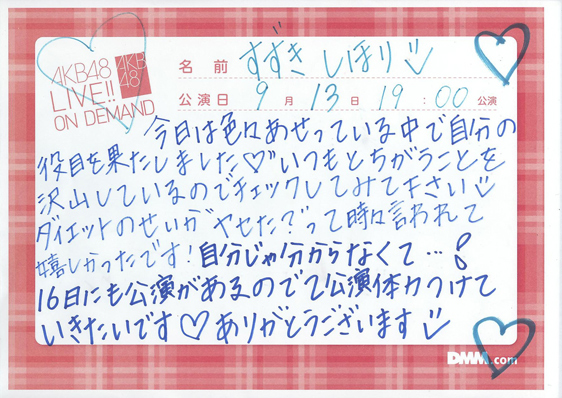 AKB48
LIVE!!
ON DEMAND
AKB
48
名前 すずき しほり
公演日 9月 13日 19:00 公演
今日は色々あせっている中で自分の
役目を果たしました♡いつもとちがうことを
沢山しているのでチェックしてみて下さい
ダイエットのせいが"ヤセた?"って時々言われて
嬉しかったです!自分じゃ分からなくて…!
16日にも公演があるので公演体力つけて
いきたいです♡ありがとうございます
DMM.com